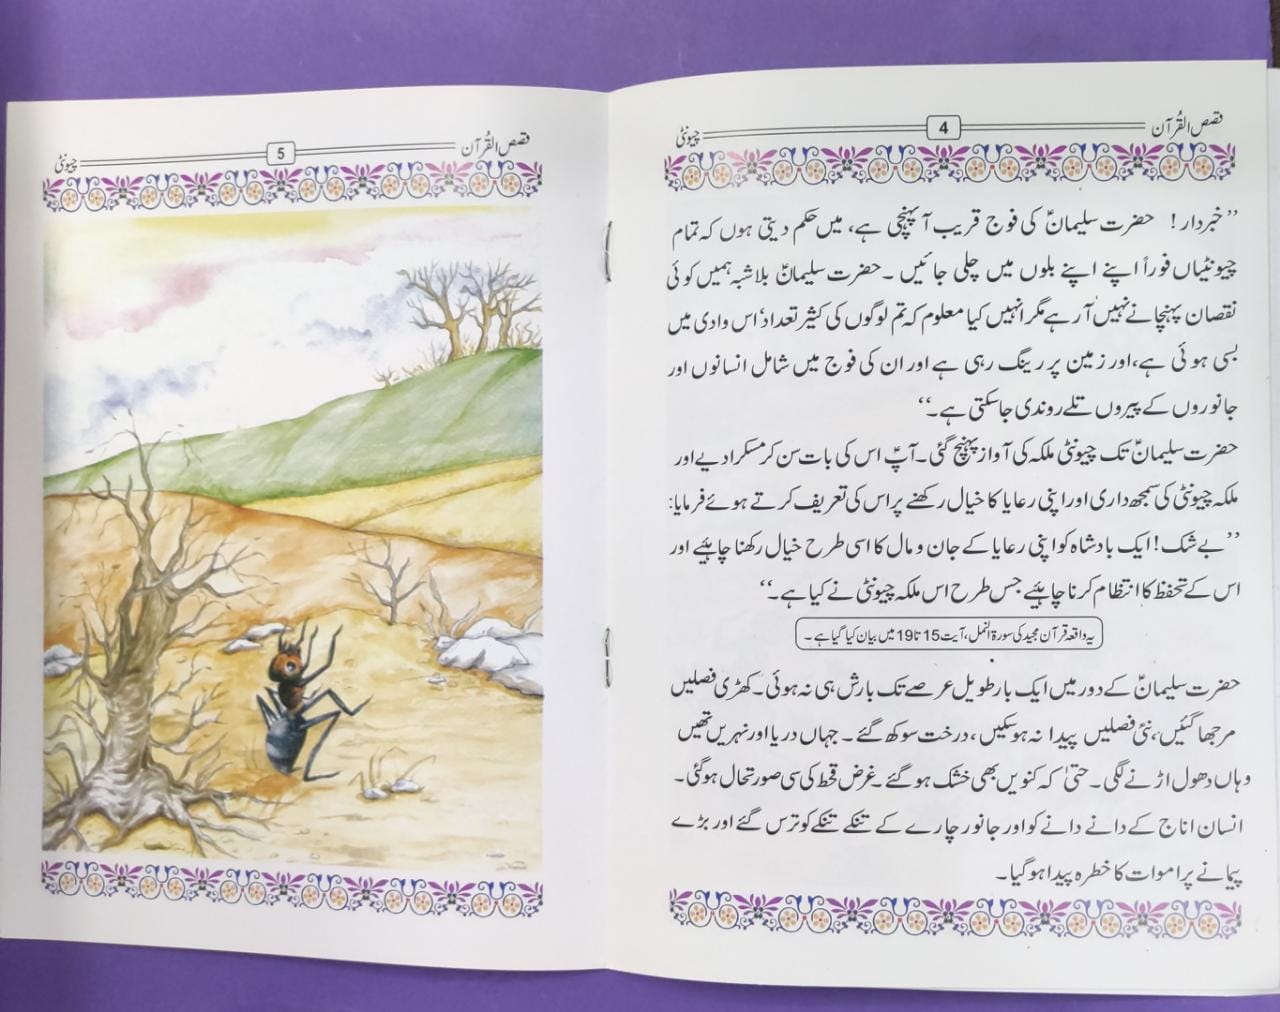 قصص القُرآن
4
چیونٹی
’’خبردار! حضرت سلیمانؑ کی فوج قریب آ پہنچی ہے، میں حکم دیتی ہوں کہ تمام
چیونٹیاں فوراً اپنے اپنے بلوں میں چلی جائیں ۔ حضرت سلیمانؑ بلاشبہ ہمیں کوئی
نقصان پہنچانے نہیں آرہے مگر انہیں کیا معلوم کہ تم لوگوں کی کثیر تعداد‘ اس وادی میں
بسی ہوئی ہے،اور زمین پر رینگ رہی ہے اور ان کی فوج میں شامل انسانوں اور
جانوروں کے پیروں تلے روندی جاسکتی ہے۔‘‘
حضرت سلیمانؑ تک چیونٹی ملکہ کی آواز پہنچ گئی۔ آپؑ اس کی بات سن کر مسکرا دیے اور
ملکہ چیونٹی کی سمجھ داری اور اپنی رعایا کا خیال رکھنے پر اس کی تعریف کرتے ہوئے فرمایا:
’’بے شک! ایک بادشاہ کو اپنی رعایا کے جان و مال کا اسی طرح خیال رکھنا چاہئیے اور
اس کے تحفظ کا انتظام کرنا چاہئیے جس طرح اس ملکہ چیونٹی نے کیا ہے۔‘‘
یہ واقعہ قرآن مجید کی سورۃ النمل، آیت 15 تا 19 میں بیان کیا گیا ہے۔
حضرت سلیمانؑ کے دور میں ایک بار طویل عرصے تک بارش ہی نہ ہوئی۔ کھڑی فصلیں
مرجھا گئیں،نئی فصلیں پیدا نہ ہوسکیں، درخت سوکھ گئے ۔ جہاں دریا اور نہریں تھیں
وہاں دھول اڑنے لگی۔ حتیٰ کہ کنویں بھی خشک ہو گئے۔ غرض قحط کی سی صورتحال ہوگئی۔
انسان اناج کے دانے دانے کو اور جانور چارے کے تنکے تنکے کو ترس گئے اور بڑے
پیمانے پر اموات کا خطرہ پیدا ہو گیا۔
قصص القُرآن
5
چیونٹی